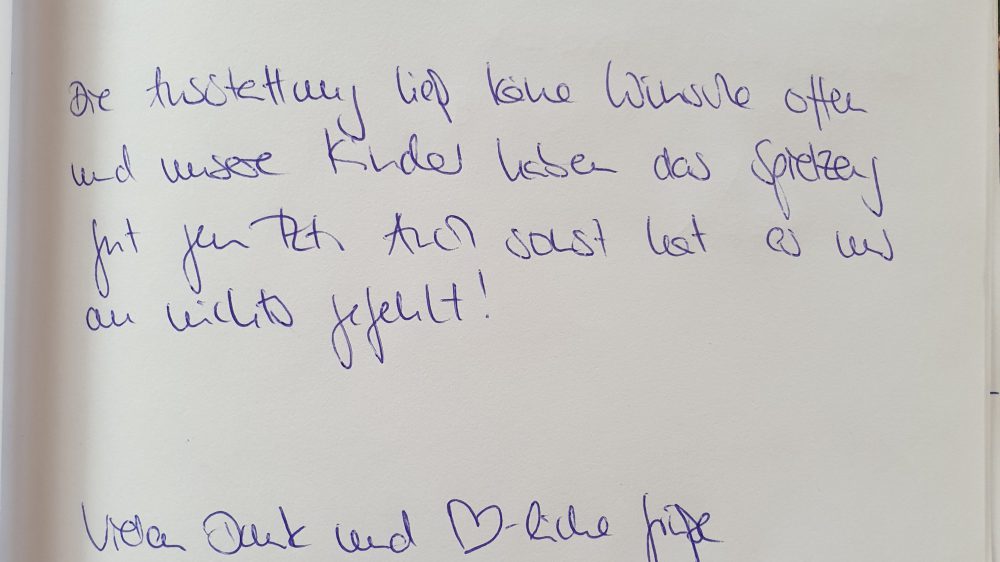 Die Ausstattung ließ keine Wünsche offen
und unsere Kinder haben das Spielzeug
gut genutzt. Auch sonst hat es uns
an nichts gefehlt!
Vielen Dank und ♡-liche Grüße